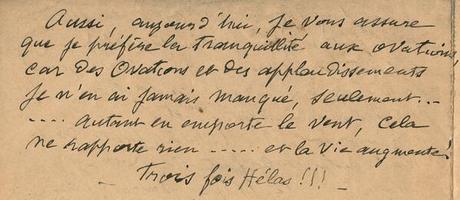 Aussi, aujourd'hui, je vous assure
que je préfère la tranquillité aux ovations,
car des Ovations et des applaudissements
je n'en ai jamais manqué, seulement...
.... autant en emporte le vent, cela
ne rapporte rien ..... et la Vie augmente!
_ Trois fois Hélas!!! _